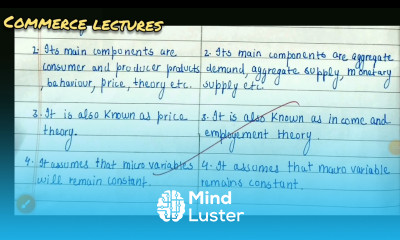 COMMERCE LECTURES
2. Its main components are
consumer and producer products
, bahaviour, price, theory etc.
3. It is also known as price
theory.
4. It assumes that micro variables
will remain constant.
2. Its main components are aggregate
demand, aggregate supply, monetary
supply etc.
3. It is also known as income and
employement theory.
4. It assumes that macro variable
remains constant.
Mind
Luster